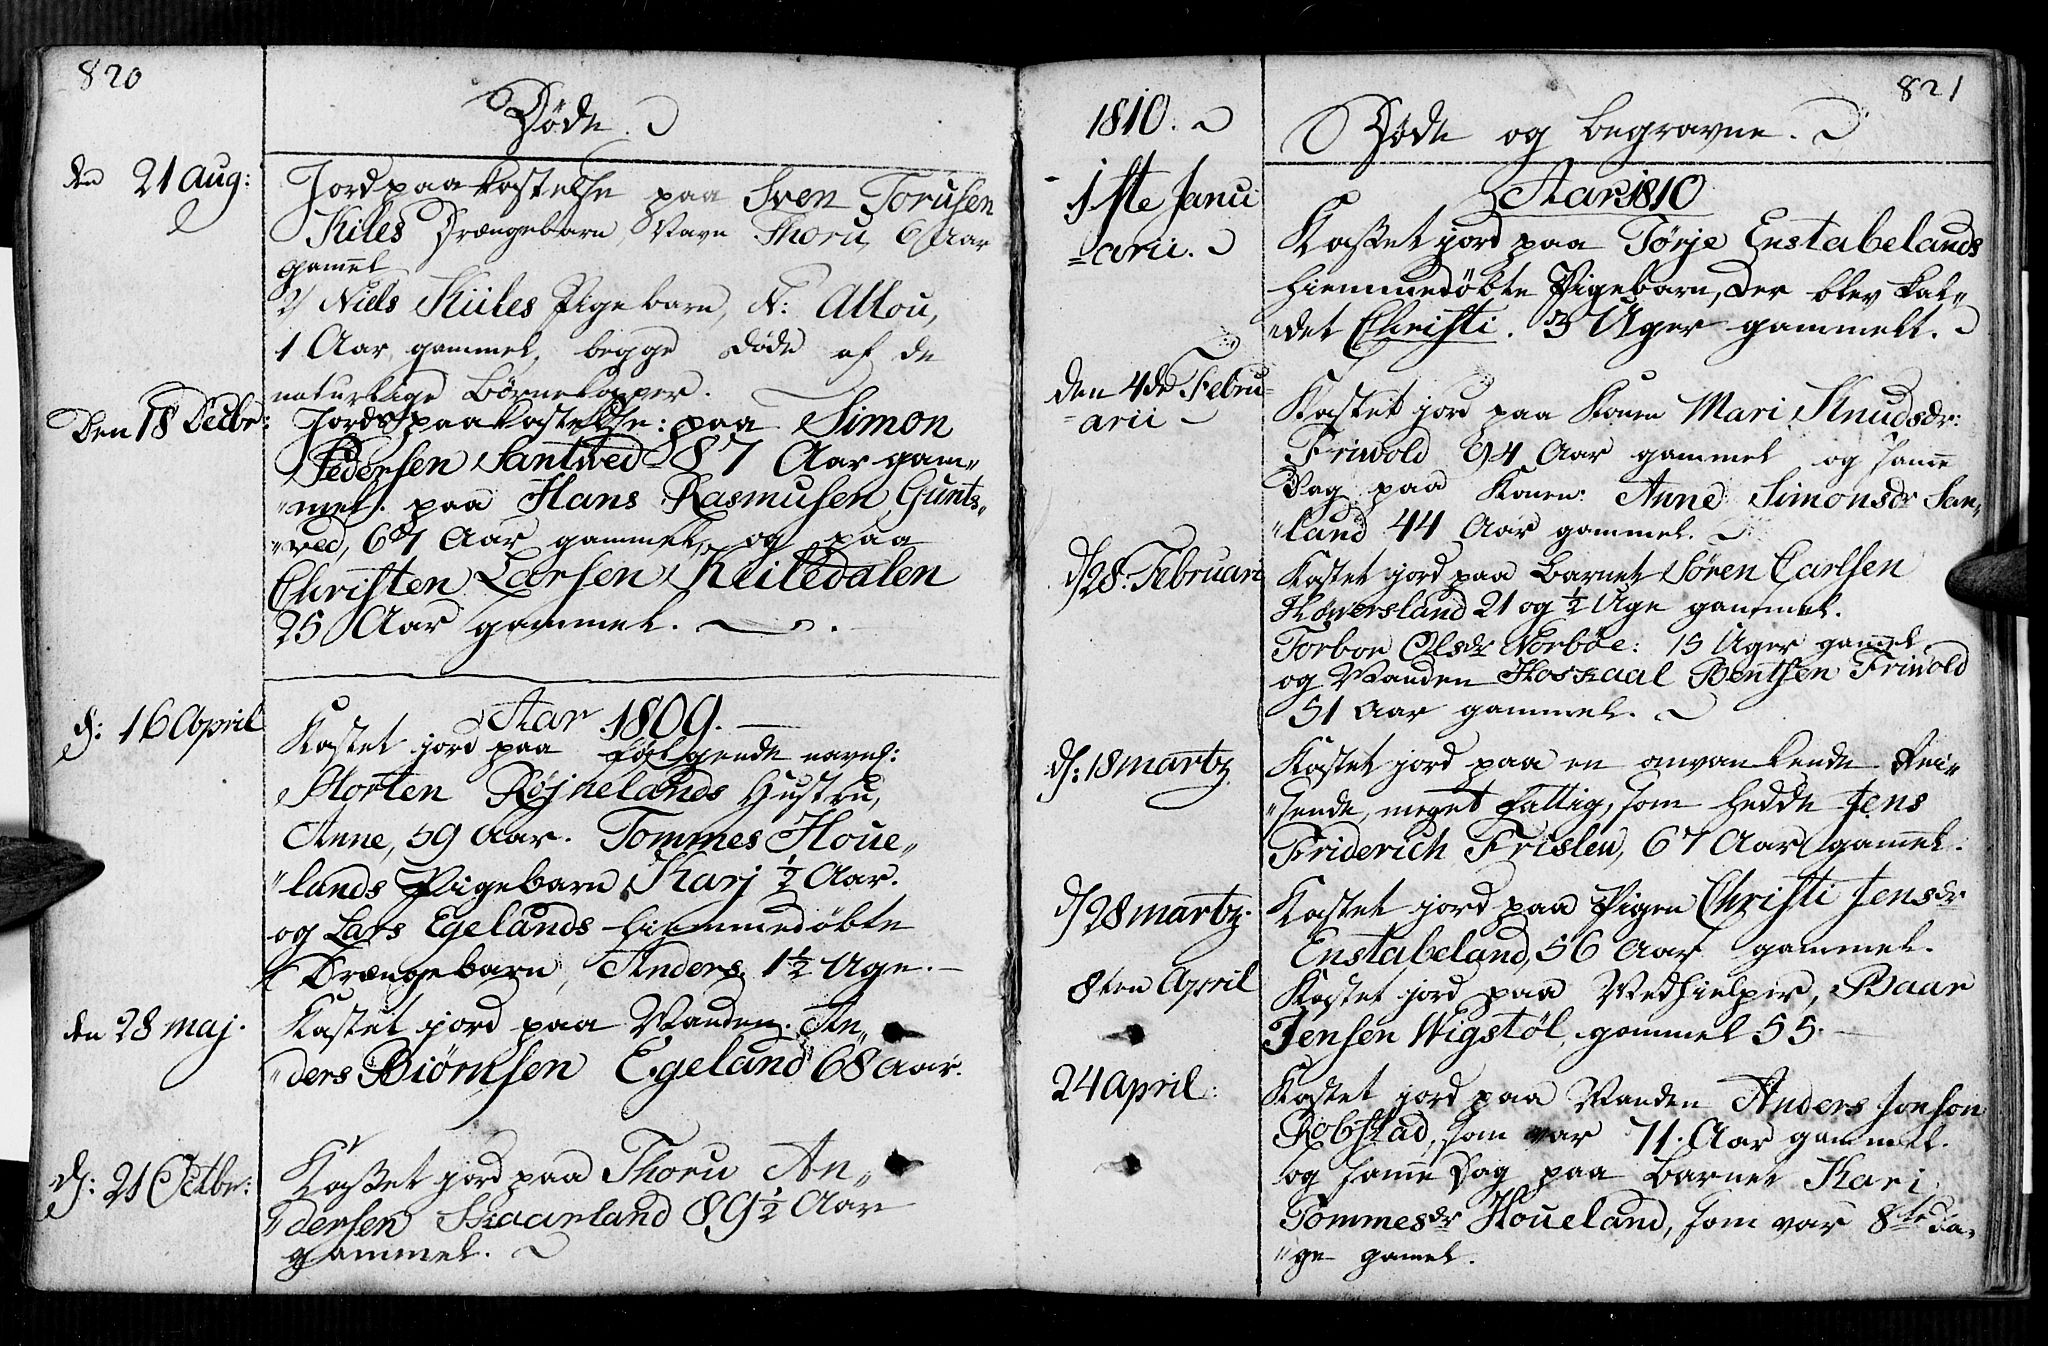 820
Døde.
den 21 Aug:
Jordpaakastelse paa Sven Torusen
Kiles Drængebarn, Navn Thoru, 6 Aar
gamel
2/ Niels Kiiles Pigebarn, N: Allou,
1 Aar gammel, begge døde af de
naturlige Børnekopper.
Den 18 Decbr:
Jordspaakastelse: paa Simon
Pedersen Santved 87 Aar gam„
„mel. paa Hans Rasmusen Gunts„
„ved, 67 Aar gammel, og paa
Christen Larsen Keiledalen
25 Aar gammel.
Aar 1809.
d: 16 April
Kastet jord paa følgende navnl:
Morten Røjnelands Hustru,
Anne, 59 Aar. Tommes Houe„
„lands Pigebarn Karj ½ Aar.
og Lars Egelands hiemmedøbte
Drængebarn, Anders 1½ Uge.
den 28 maj.
Kastet jord paa Manden An„
„ders Biørnsen Egeland 68 Aar.
d: 21 Octbr:
Kastet jord paa Thoru An„
„dersen Skaarland 89½ Aar
gammel.
821
1810.
Døde og begravne.
Aar 1810
1ste Janu
=arii.
Kastet jord paa Tørje Enstabelands
hiemmedøbte Pigebarn, der blev kal„
„det Christi. 3 Uger gammelt.
den 4de Febru
=arii
Kastet jord paa Konen Mari Knudsdr:
Friwold 94 Aar gammel og samme
Dag paa Konen: Anne Simonsdr San„
„land 44 Aar gammel.
d/ 28. Februari
Kastet jord paa Barnet Søren Carlsen
Høversland 21 og ½ Uge gammel.
Torbor Olsdr Norbøe: 15 Uger gamel
og Manden Hoskaal Bentsen Friwold
51 Aar gammel.
d: 18 martz
Kastet jord paa en omvankende Rei„
„sende, meget fattig, som hedde Jens
Friderich Frislen, 67 Aar gamel.
d/ 28 martz.
Kastet jord paa Pigen Christi Jensdr
Enstabeland, 56 Aar gammel.
8ten April
Kastet jord paa Medhielper, Baar
Jensen Wigstøl, gammel 55.
24 April:
Kastet jord paa Manden Anders Jonson
Robstad, som var 71. Aar gammel.
og samme Dag paa Barnet Kari
Tommesdr Houeland, som var 8te Da„
„ge gamel.